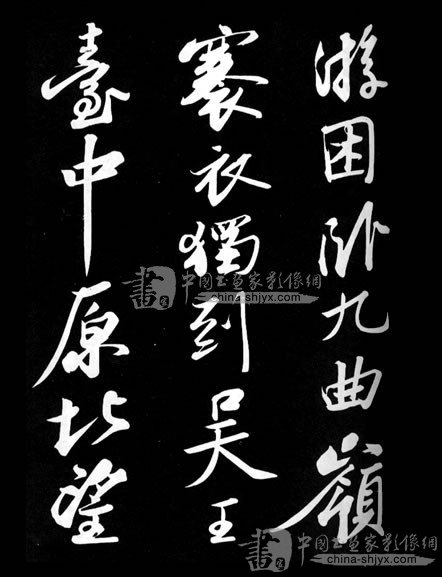 游困卧九曲嶺
褰衣獨到吴王
臺中原北望
書 中國书画家影像網
china-shjyx.com
書 中國书画家影像網
china-shjyx.com